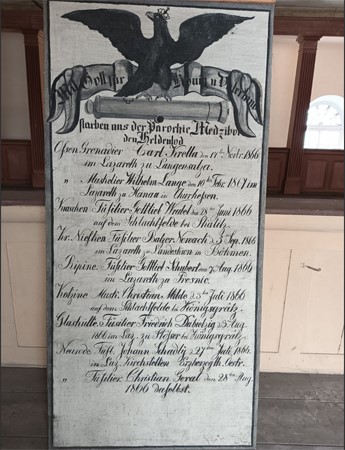 Mit Gott für König u. Vaterland
starben aus der Parochie Medzibor
den Heldentod.
Ossen Grenadier Carl Krella den 17ten Novbr. 1866
im Lazareth zu Langensalza.
" Musketier Wilhelm Lange den 10ten Febr. 1867 im
Lazareth zu Hanau in Churhessen.
Füsilier Gottlieb den 28ten Juni 1866
auf dem Schlachtfelde bei Skalitz.
Kr. Füsilier Balzer Nowack 3. Sep. 1866
im Lazareth zu Landeskron in Böhmen.
Füsilier Gottlieb Schubert den Aug. 1866
im Lazareth zu
Musk. Christian den 3ten Juli 1866
auf dem Schlachtfelde bei Königgrätz.
Glashütte Füsilier Friedrich den 5. Aug.
1866 im Laz. zu bei Königgrätz.
Neurode Füs. Johann den 27ten Juli 1866.
im Laz. Kirchstetten
" Füsilier Christian den 28ten Aug.
1866 daselbst.